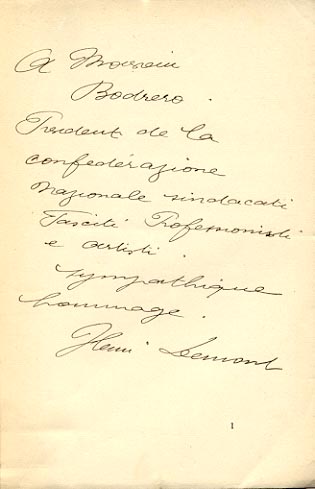 A Monsieur
Bodrero.
President de la
confederazione
nazionale sindacati
Fasciti Professionisti
e artisti.
sympathique
hommage.
Henri Demont
1